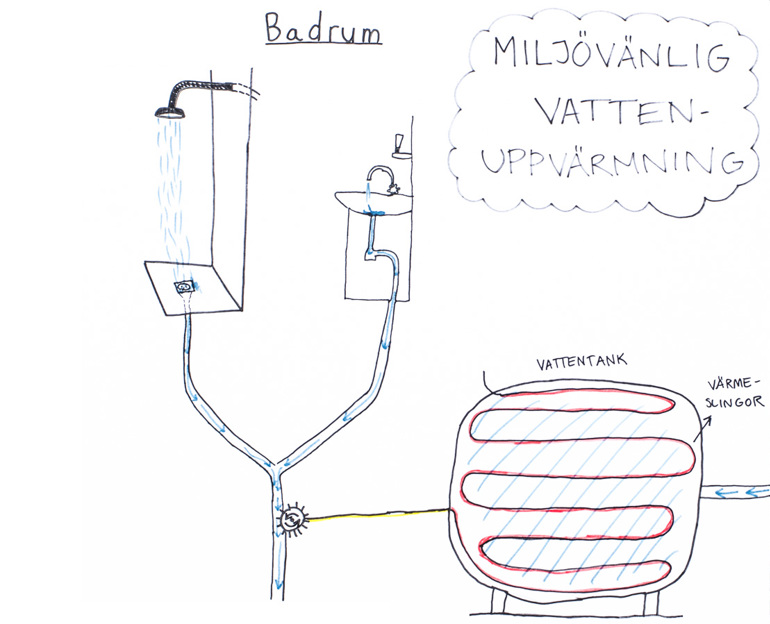 Badrum
MILJÖVÄNLIG
VATTEN-
UPPVÄRMNING
VATTENTANK
VÄRME-
SLINGOR